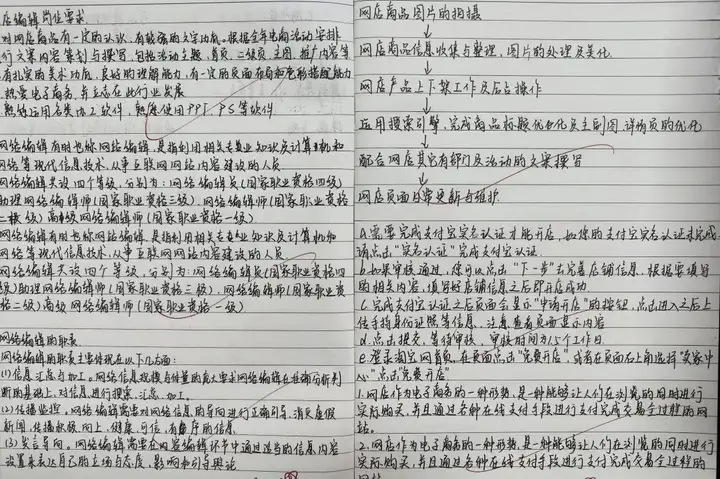 店编辑岗位要求
对网店商品有一定的认识,有较强的文字功底。根据全年电商活动安排
行文案内容策划与撰写,包括活动主题、首页、二级页、主图、推广内容等
有扎实的美术功底,良好的理解能力,有一定的页面布局和色彩搭配能力
热爱电子商务,并立志在此行业发展
熟练运用各类办公软件,熟练使用PPT、PS等软件
网络编辑有时也称网络编辑,是指利用相关专业知识及计算机和
网络等现代信息技术,从事互联网网站内容建设的人员
网络编辑共设四个等级,分别为:网络编辑员(国家职业资格四级)
助理网络编辑师(国家职业资格三级)、网络编辑师(国家职业资格
二级)高级网络编辑师(国家职业资格一级)
网络编辑有时也称网络编辑,是指利用相关专业知识及计算机和
网络等现代信息技术,从事互联网网站内容建设的人员
网络编辑共设四个等级,分别为:网络编辑员(国家职业资格四
级)助理网络编辑师(国家职业资格三级)、网络编辑师(国家职业资
格二级)高级网络编辑师(国家职业资格一级)
网络编辑的职责
网络编辑的职责主要体现在以下几方面:
(1)信息汇总与加工。网络信息规模与体量的庞大要求网络编辑在准确分析判
断的基础上,对信息进行搜索、汇总、加工。
(2)传播监控,网络编辑需要对网络信息的导向进行正确引导,消灭虚假
新闻,传播积极、向上、健康、可信、有秩序的信息。
(3)发言导向,网络编辑需要在内容编辑环节中通过适当的信息内容
设置来表达自己的立场与态度,影响和引导舆论
网店商品图片的拍摄
↓
网店商品信息收集与整理,图片的处理及美化
↓
网店产品上下架工作及后台操作
↓
运用搜索引擎,完成商品标题优化及主副图、详情页的优化
↓
配合网店其它部门及活动的文案撰写
↓
网店页面日常更新与维护
A.需要完成支付宝实名认证才能开店,如您的支付宝实名认证未完成
请点击"实名认证"完成支付宝认证
b.如果审核通过,您可以点击"下一步"去完善店铺信息,根据要填写
的相关内容,填写好店铺信息之后即开店成功
C.完成支付宝认证之后页面会显示"申请开店"的按钮,点击进入之后上
传手持身份证照等信息,注意查看页面显示内容
d.点击提交,等待审核,审核时间为1~5个工作日
e.登录淘宝网首页,在页面点击"免费开店",或者在页面右上角选择"卖家中
心"点击"免费开店"
1.网店作为电子商务的一种形势,是一种能够让人们在浏览的同时进行
实际购买,并且通过各种在线支付手段进行支付完成交易全过程的网
站。
2.网店作为电子商务的一种形势,是一种能够让人们在浏览的同时进行
实际购买,并且通过各种在线支付手段进行支付完成交易全过程的